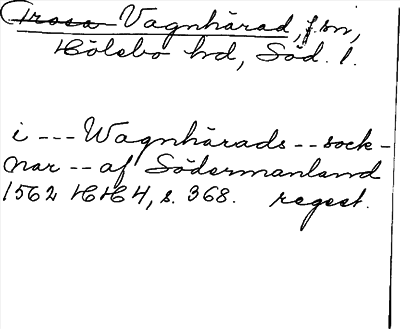 Trosa Vagnhärad, f. sn,
Hölebo hd, Söd. l.
i --- Wagnhärads -- sock-
nar -- af Södermanland
1562 HH 4, s. 368. regest.